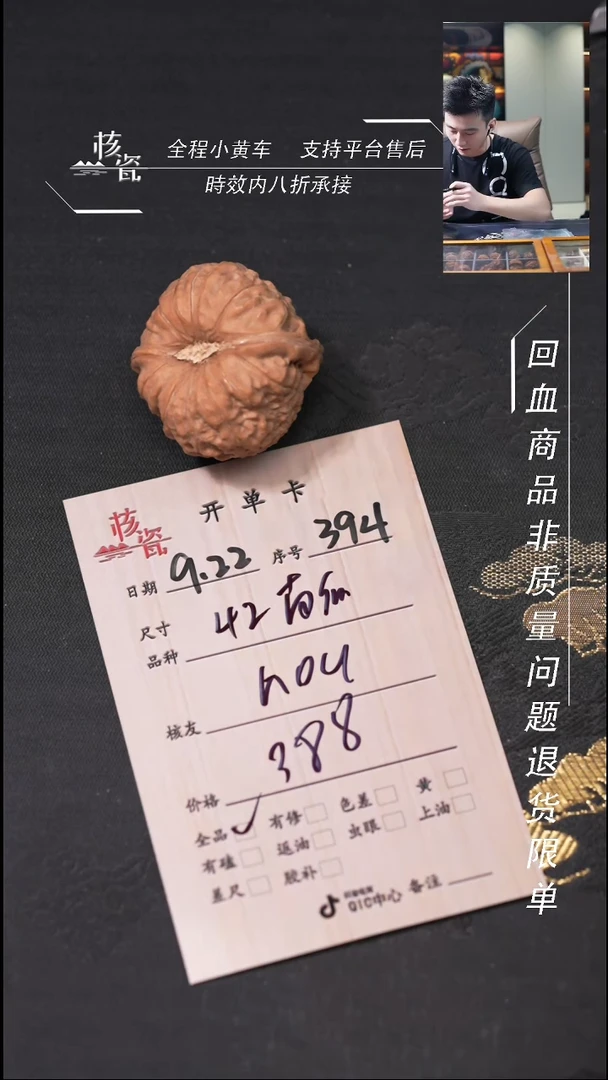 核瓷
全程小黄车 支持平台售后
時效内八折承接
回血商品非质量问题退货限单
核瓷
开单卡
日期 9.22 序号 394
尺寸 42
品种
hou
核友
388
价格
全品 ✓ 有修 色差 黄
有磕 返油 虫眼 上油
差尺 胶补
QIC中心 备注